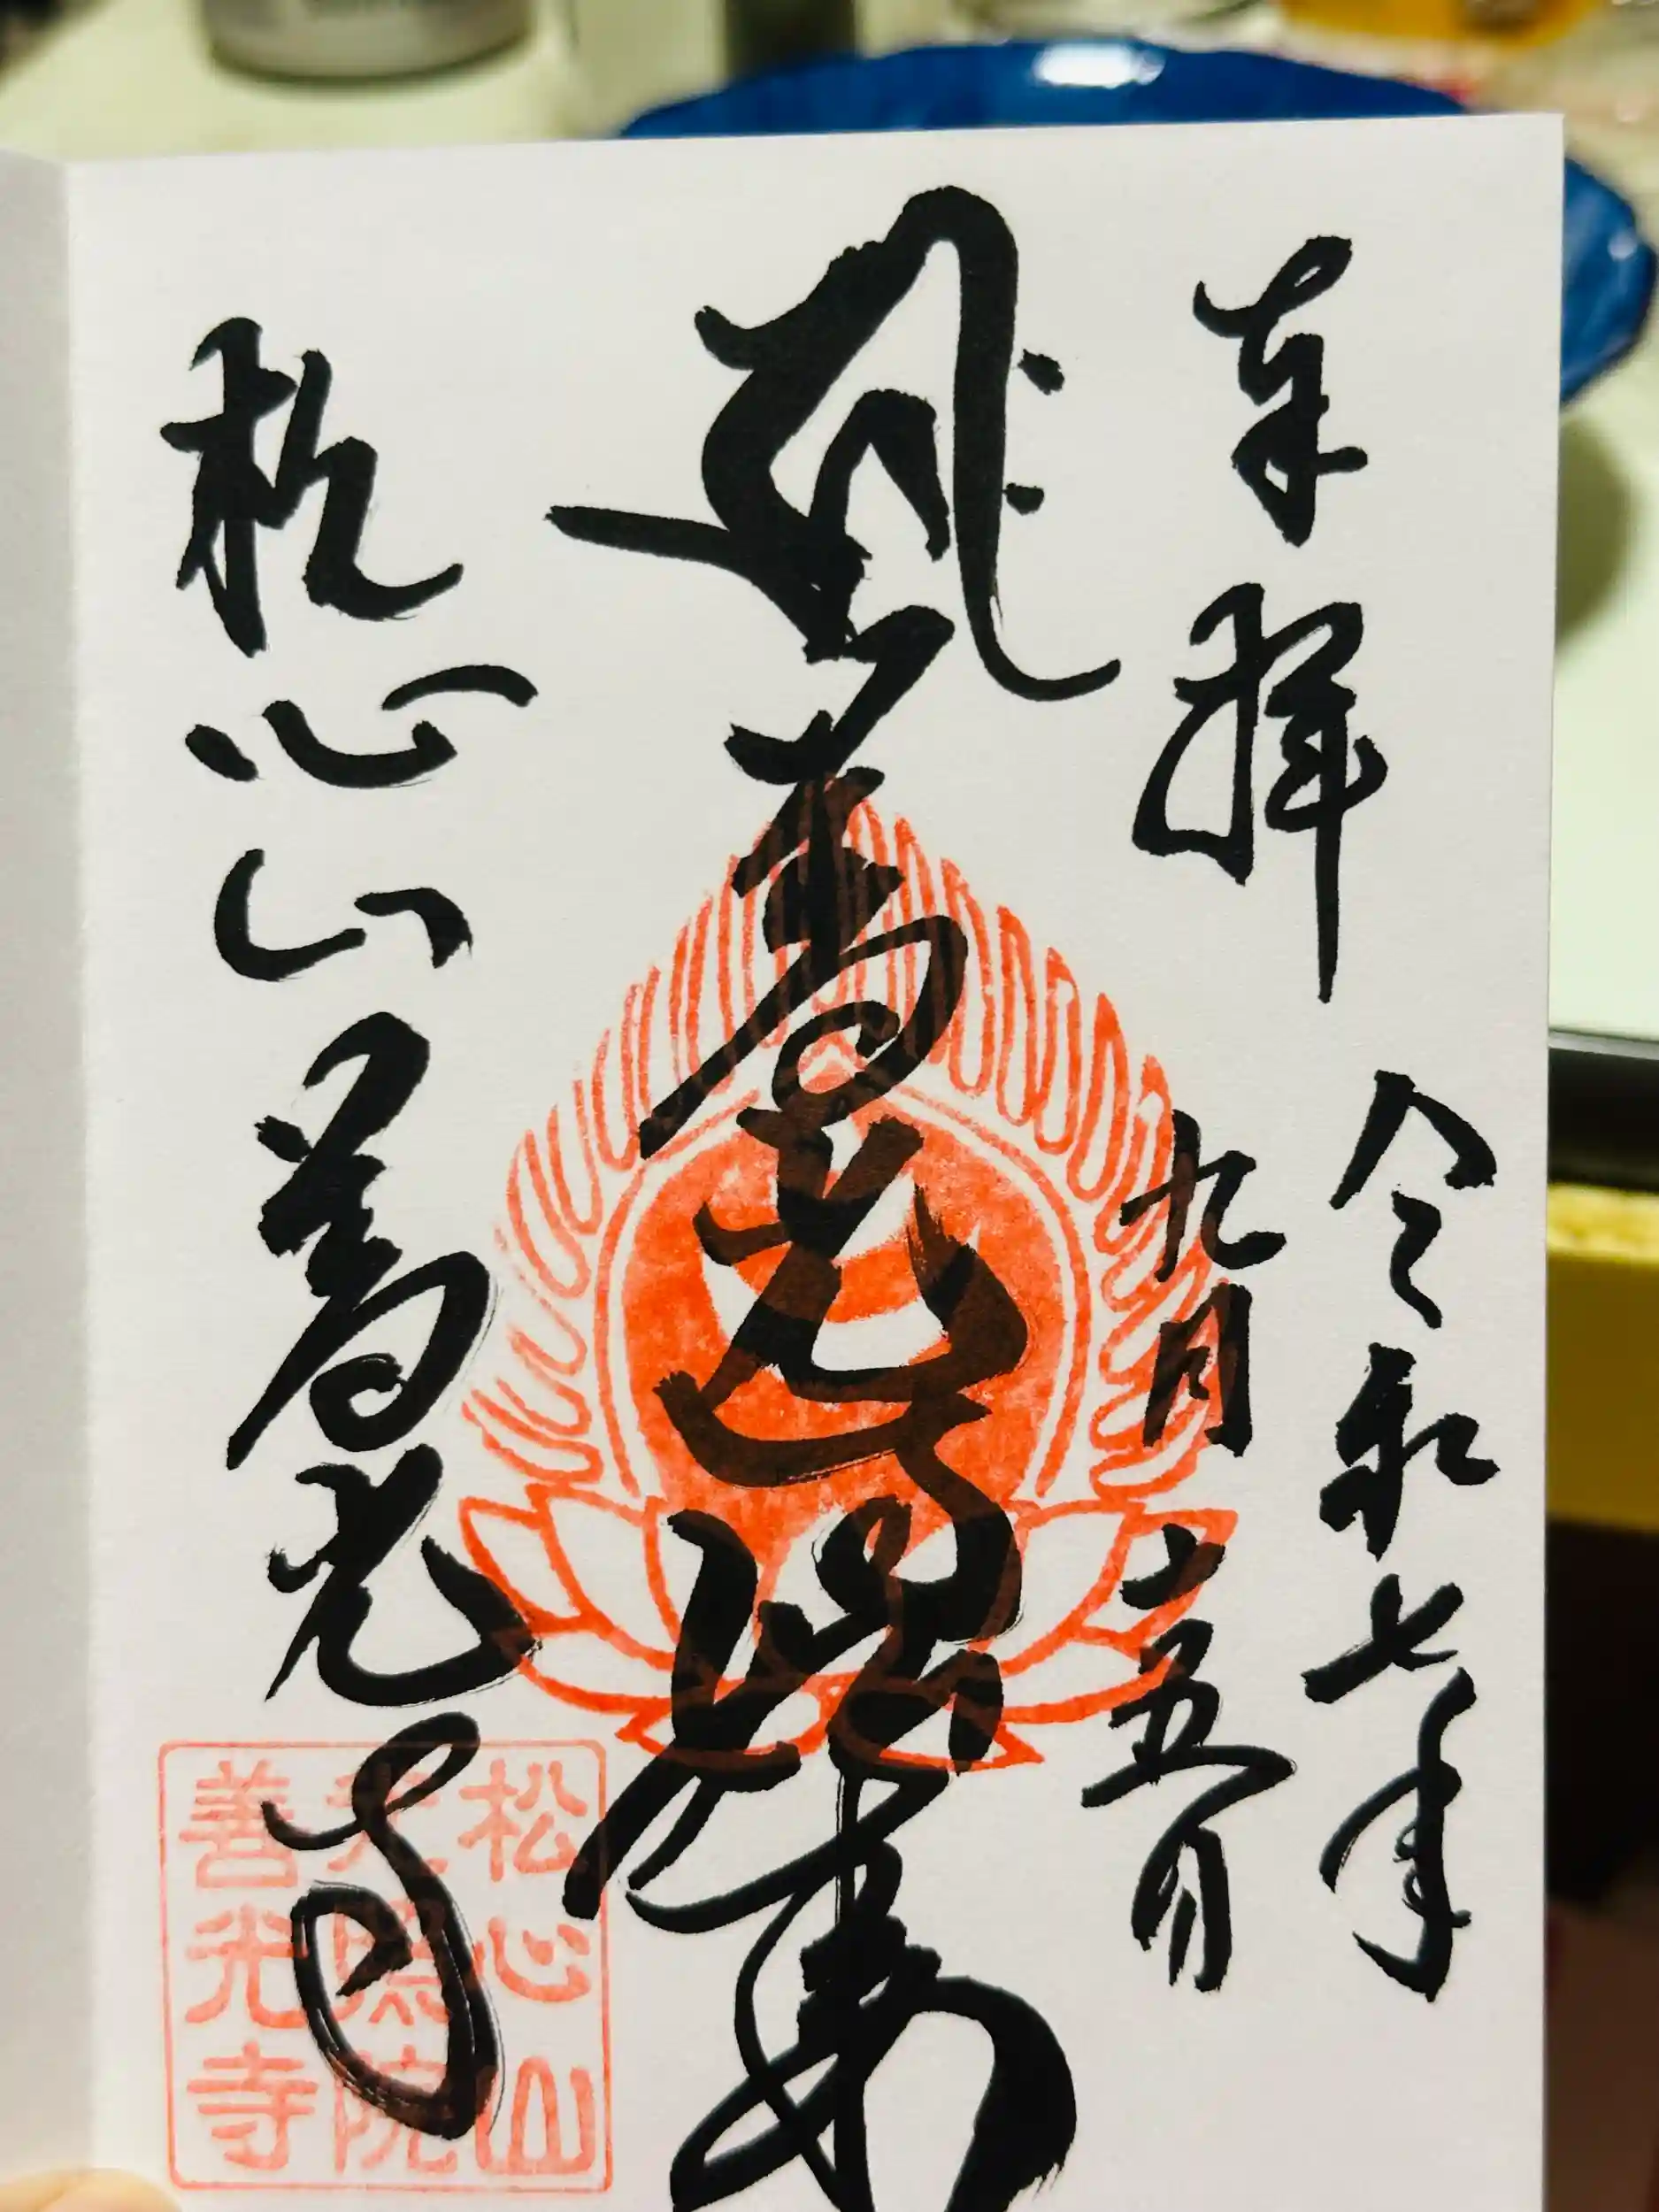 奉拝
令和七年
九月十五日
善光 如来
松心山善光寺
松心山
光照院
善光寺